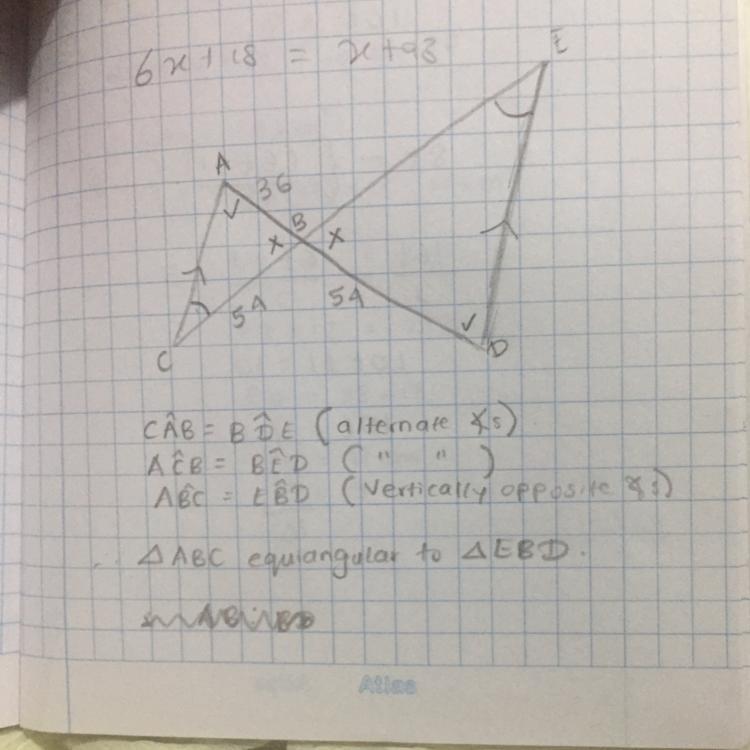 6x+18 = x+98
E
A
36
B
x x
54
54
C
D
CÂB = BD̂E (alternate ∡s)
AĈB = BÊD (" ")
AB̂C = EB̂D (Vertically opposite ∡s)
△ABC equiangular to △EBD.
Atlas